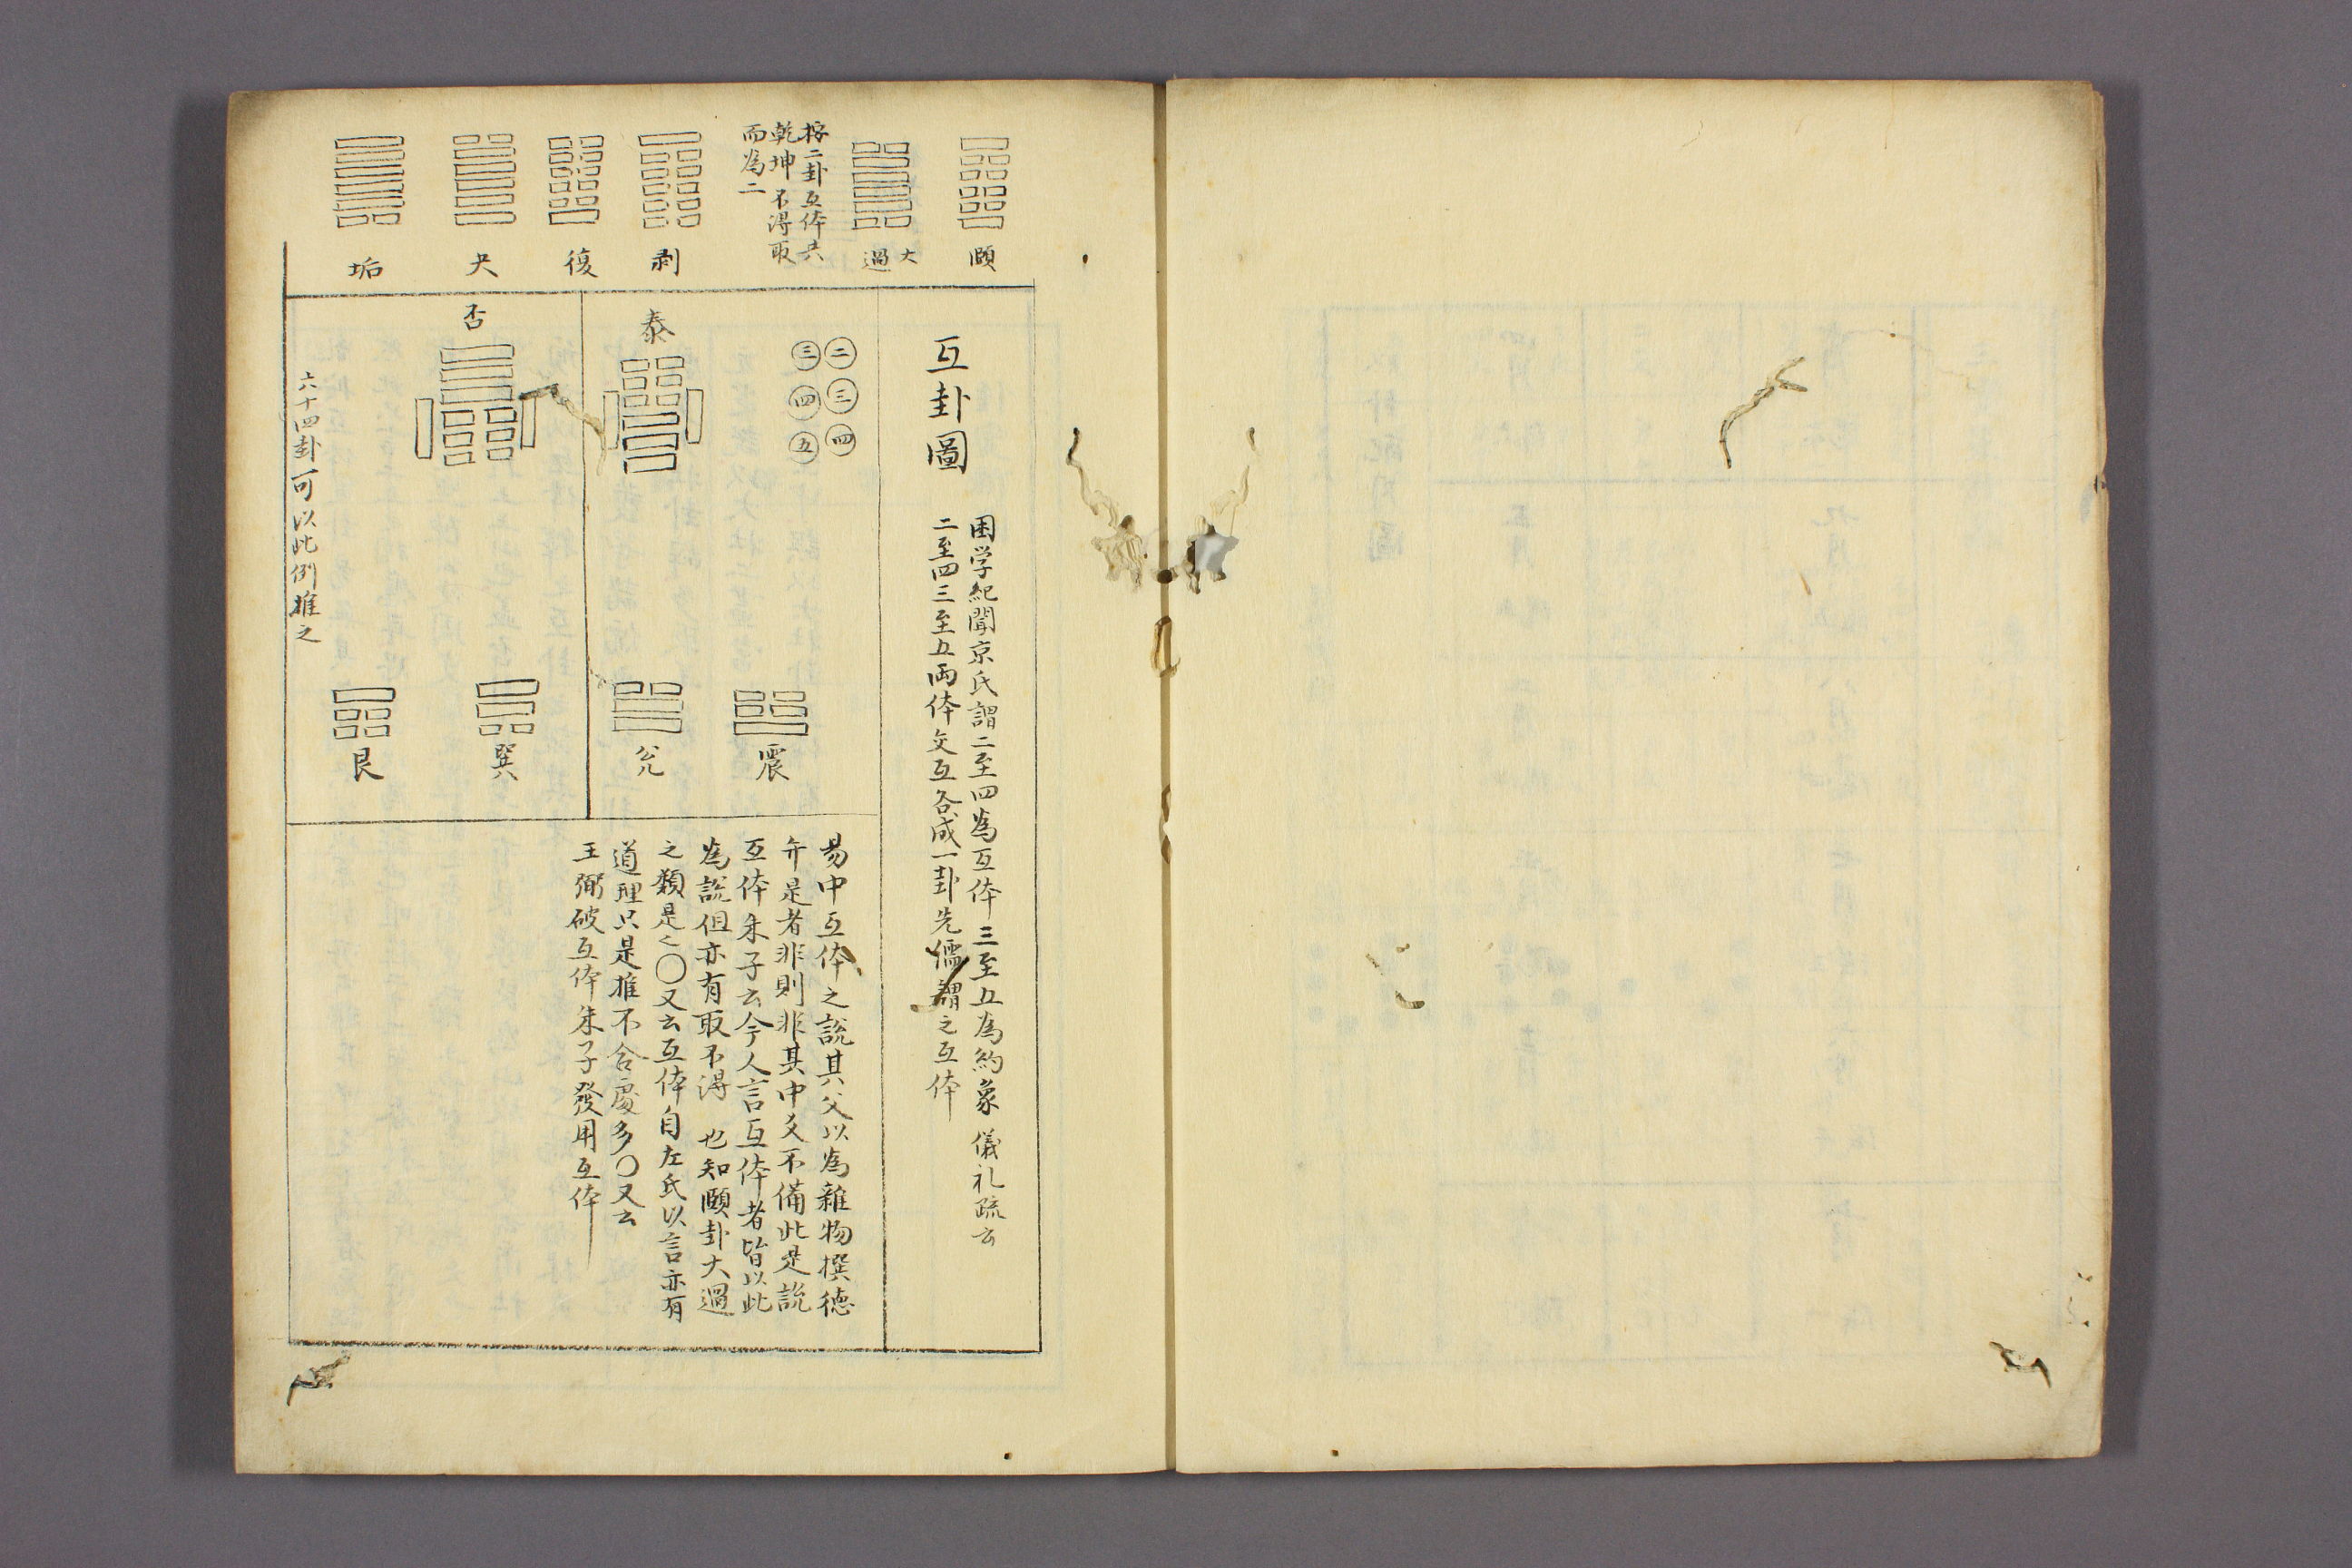 頤
大過
按二卦互体共
乾坤 不得取
而為二
剥
復
夬
垢
互卦圖
困学紀聞京氏謂二至四為互体 三至五為約象 儀礼疏云
二至四三至五両体交互各成一卦先儒謂之互体
二 三 四
三 四 五
泰
震
兌
否
巽
艮
六十四卦可以此例推之
易中互体之説其父以為雜物撰徳
弁是者非則非其中爻不備此是説
互体朱子云今人言互体者皆以此
為説但亦有取不得 也知頤卦大過
之類是〻○又云互体自左氏以言亦有
道理只是推不合處多○又云
王弼破互体朱子發用互体